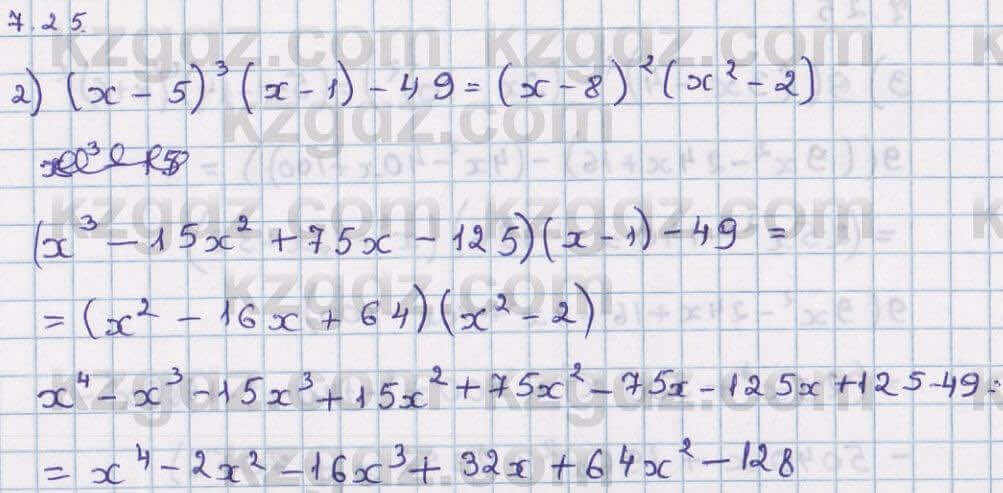 7.25.
2) (x - 5)³ (x - 1) - 49 = (x - 8)² (x² - 2)
(x³ - 15x² + 75x - 125)(x - 1) - 49 =
= (x² - 16x + 64)(x² - 2)
x⁴ - x³ - 15x³ + 15x² + 75x² - 75x - 125x + 125 - 49 =
= x⁴ - 2x² - 16x³ + 32x + 64x² - 128
kzgdz.com kzgdz.com
kzgdz.com
kzgdz.com kzgdz.com
kzgdz.com
kzgdz.com kzgdz.com